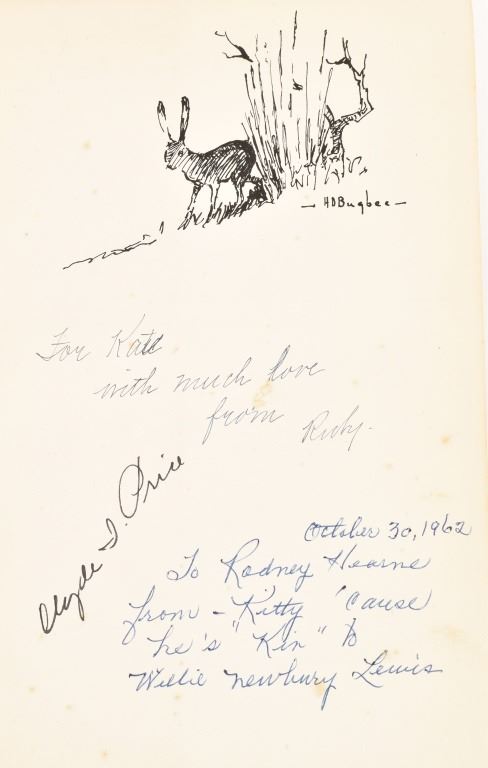 — HDBugbee —
For Kate
with much love
from Ruby.
Clyde I. Price
October 30, 1962
To Rodney Hearne
from - Kitty 'cause
he's "Kin" to
Willie Newbury Lewis